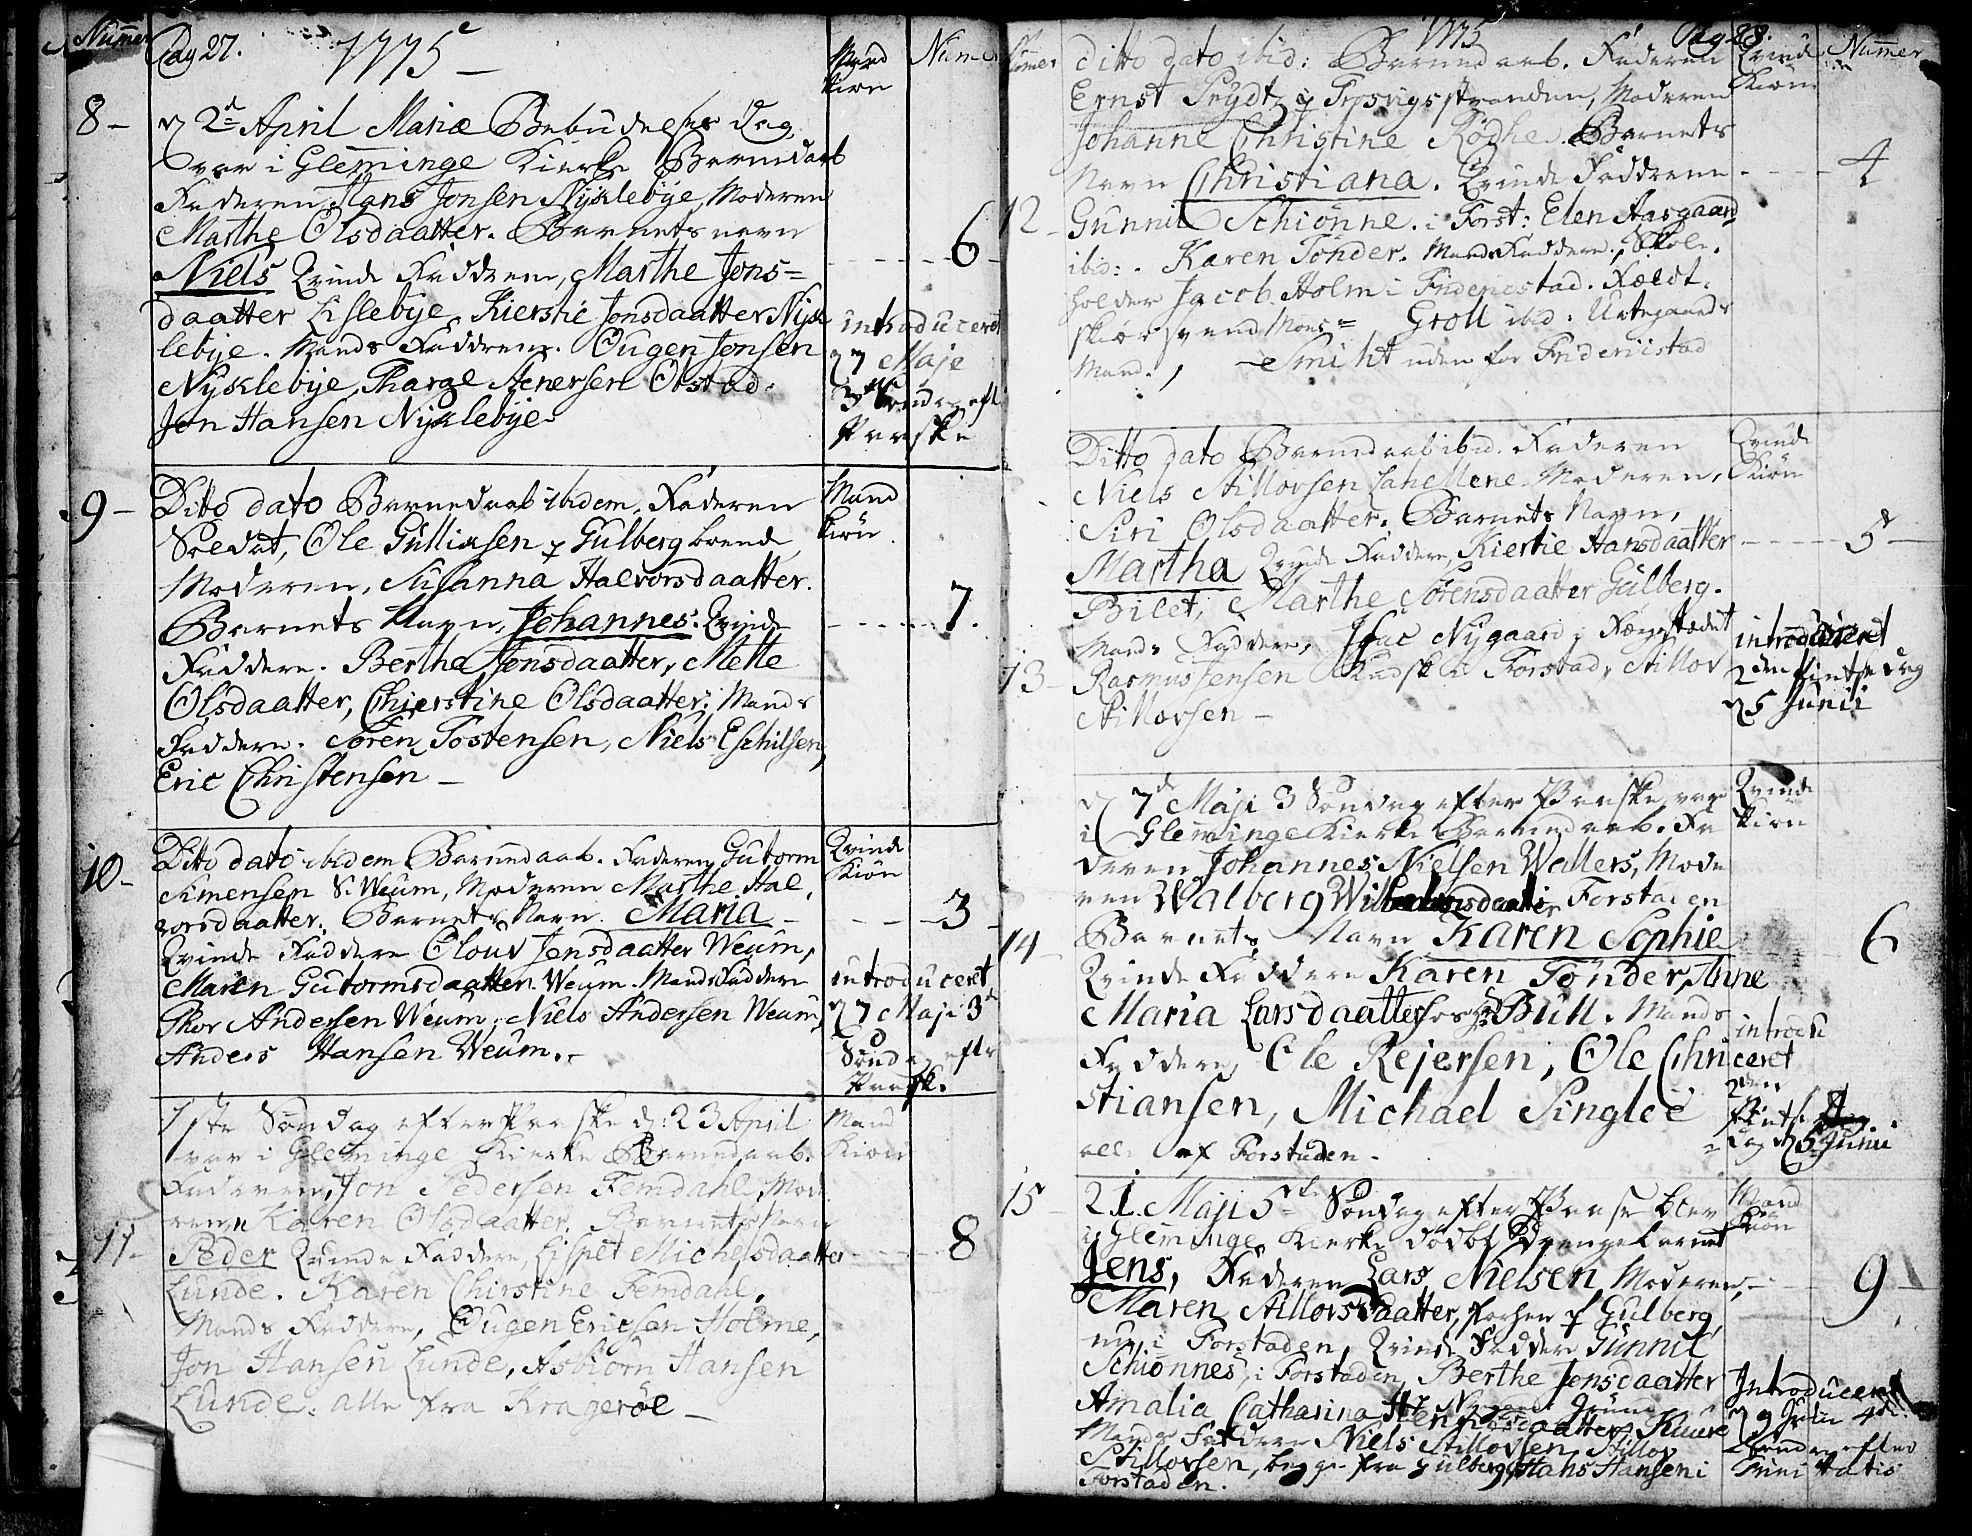 Nummer
Pag 27. 1775
Mand Kiøn
Numer
8 -
D 2d April Mariæ Bebudelses dag,
var i Glemminge Kierke Barnedaab
Faderen Hans Jonsen Nyklebye, Moderen
Marthe Olsdaatter. Barnets navn
Niels Qvinde Faddrene, Marthe Jons=
daatter Lislebye, Kierstie Jonsdaatter Nyk
lebye. Mands Faddrene. Ougen Jonsen
Nyklebye, Tharge Aenersen Olstad.
Jon Hansen Nyklebye.
6
introduceret
D 7 Maje
3die Søndag eft
Paaske
9 -
Ditto dato Barnedaab ibidem. Faderen
Soldat, Ole Gulliksen p Gulberg boende
Moderen, Susanna Halvorsdaatter.
Barnets Navn, Johannes. Qvinde
Faddere. Berthe Jonsdaatter, Mette
Olsdaatter, Chierstine Olsdaatter; Mands
Faddere. Søren Tostensen, Niels Eschilsen,
Eric Christensen -
Mand
Kiøn
7.
10 -
Ditto dato ibidem Barnedaab. Faderen Gutorm
Simensen S: Weum, Moderen Marthe Hal,
vorsdaatter. Barnets Navn. Maria -
Qvinde Faddere Oloug Jensdaatter Weum,
Maren Gutormsdaatter Weum. Mands Faddere
Thor Andersen Weum, Niels Andersen Weum,
Anders Hansen Weum. -
Qvinde
Kiøn
3
introduceret
D 7 Maji 3d
Sønd. efter
Paask.
11 -
1ste Søndag efter Paaske d: 23 April
var i Glemminge Kierke Barnedaab.
Faderen, Jon Pedersen Femdahl, Mod
eren Karen Olsdaatter. Barnets Navn
Peder Qvinde Faddere, Lispet Michelsdaatter
Lunde. Karen Chirstine Femdahl.
Mands Faddere, Ougen Ericsen Holme,
Jon Hansen Lunde, Asbiørn Hansen
Lunde. alle fra Kragerøe -
Mand
Kiøn
8
1775 Pag 28.
Nummer
Qvinde
Kiøn
Nummer
12 -
Ditto dato ibid: Barnedaab. Faderen
Ernst Prydtz i Trosvigsstranden, Moderen
Johanne Christine Rødhe. Barnets
Navn Christiana. Qvinde Faddrene.
Gunnil Schiønne. i Forst: Elen Aasgaard
ibid: . Karen Tønder. Mands Faddere, Skole.
holder Jacob Holm i Friderichstad. Feldt.
skiær svend Mons= Groll ibid: Urtegaards
Mand., Smiht uden for Fridericstad
4
13 -
Ditto dato Barnedaab ibid. Faderen
Niels Stillovsen Lahellene. Moderen,
Siri Olsdaatter. Barnets Navn,
Martha Qvinde Faddere, Kiertie Hansdaatter
Bilet, Marthe Sørensdaatter Gulberg.
Mands Faddere, Isac Nygaard i Færgestædet
Rasmus Jensen Kudsk i Forstad, Stillov
Stillovsen -
Qvinde
Kiøn
5
introduceret
2den Pintse dag
D 5 Junii
14 -
D 7d Maji 3 Søndag efter Paaske var
i Glemminge Kierke Barnedaab. Fa
deren Johannes Nielsen Wallers, Mode
ren Walberg Forstaden
Barnets Navn Karen Sophie
Qvinde Faddere Karen Tønder, Anne
Maria Larsdaatter hos Hr Bull. Mands
Faddere, Ole Rejersen, Ole Chri
stiansen, Michael Singloe
alle af Forstaden.
Qvinde
Kiøn
6
introdu
ceret
2den
Pintse
dag D 5 Junii
15 -
21. Maji 5te Søndag efter Paase blev
i Glemminge Kierke døbt Drengebarnet
Jens, Faderen Lars Nielsen Moderen,
Maren Stillovsdaatter, forhen p Gulberg,
nu i Forstaden, Qvinde Faddere Gunnil
Schiønnes, i Forstaden, Berthe Jensdaatter
Amalia Catharina
Mands Faddere Niels Stillovsen, Stillov
Stillovsen, begge fra Gulberg, Hans Hansen i
Forstaden.
Mand
Kiøn
9
Introduceret
D 9 Julii 4de
Søndag efter
Trinitatis